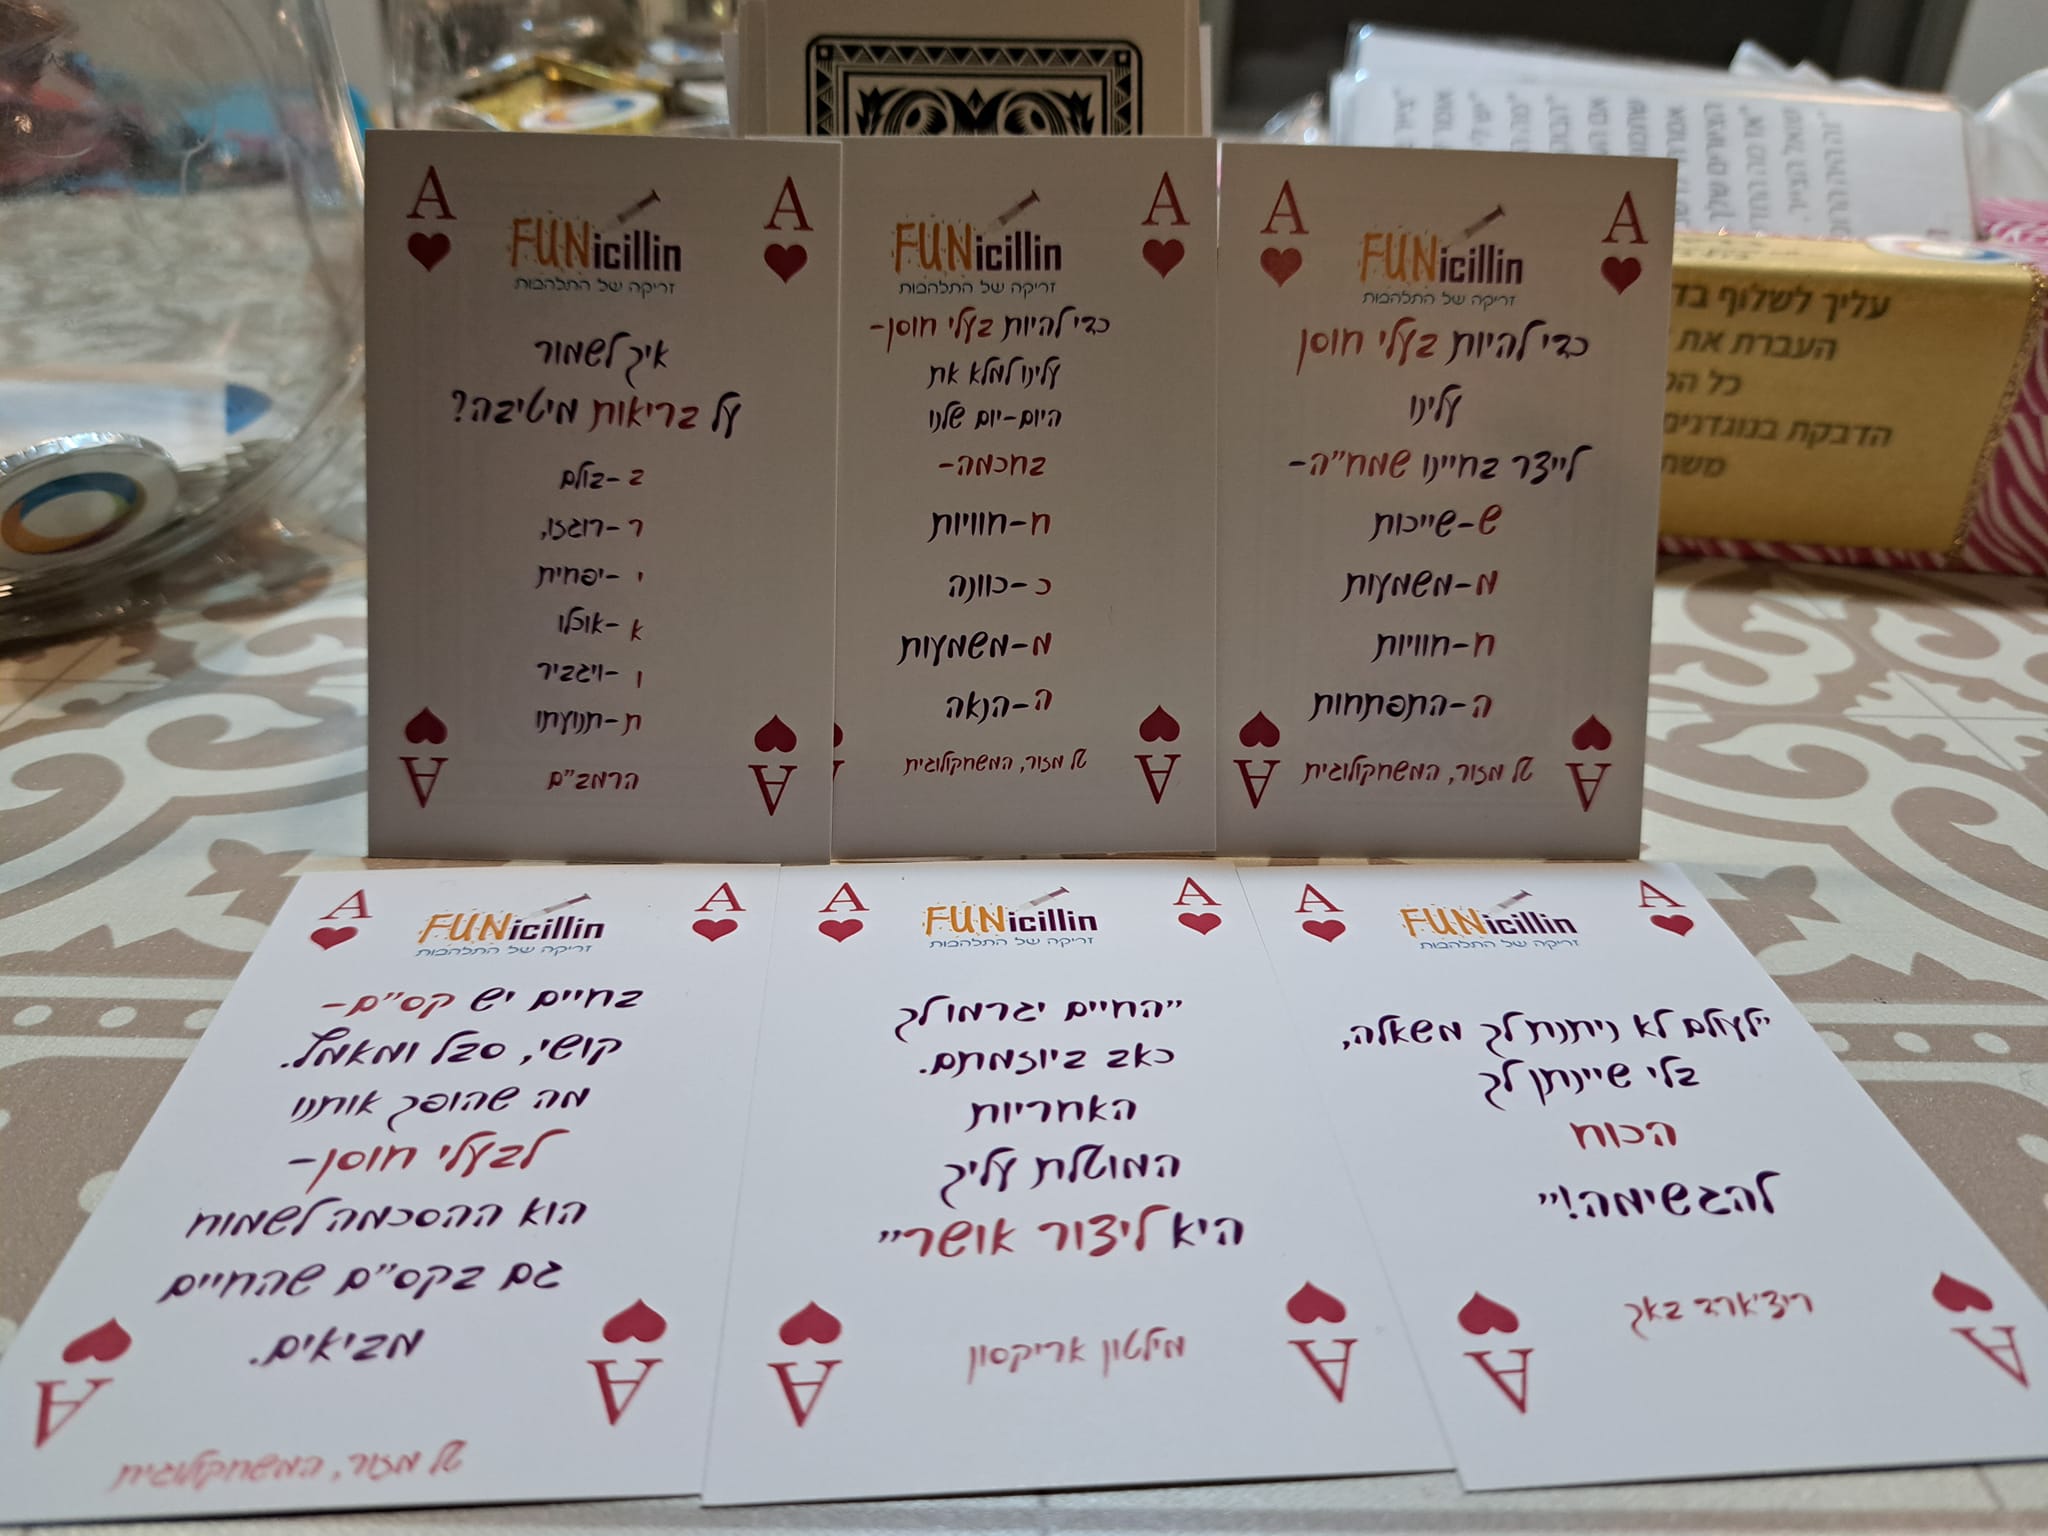 A A
FUNicillin
זריקה של התלהבות
איך לשמור
על בריאות מיטיבה?
ב-בולם
ר-רוגזו,
י-יפחית
א-אוכלו
ו-ויגביר
ת-תנועתו
הרמב"ם
A A
A
FUNicillin
זריקה של התלהבות
כדי להיות בעלי חוסן-
עלינו למלא את
היום-יום שלנו
בחכמה-
ח-חוויות
כ-כוונה
מ-משמעות
ה-הנאה
טל מזור, המשחקולוגית
A A
A A
FUNicillin
זריקה של התלהבות
כדי להיות בעלי חוסן
עלינו
לייצר בחיינו שמח"ה-
ש-שייכות
מ-משמעות
ח-חוויות
ה-התפתחות
טל מזור, המשחקולוגית
A A
עליך לשלוף בד
העברת את
כל הכ
הדבקת בנוגדנים
משת
A A
FUNicillin
זריקה של התלהבות
בחיים יש קס"ם-
קושי, סבל ומאמץ.
מה שהופך אותנו
לבעלי חוסן-
הוא ההסכמה לשמוח
גם בקס"ם שהחיים
מביאים.
טל מזור, המשחקולוגית
A A
A A
FUNicillin
זריקה של התלהבות
"החיים יגרמו לך
כאב ביוזמתם.
האחריות
המוטלת עליך
היא ליצור אושר"
מילטון אריקסון
A A
A A
FUNicillin
זריקה של התלהבות
"לעולם לא ניתנת לך משאלה,
בלי שיינתן לך
הכוח
להגשימה!"
ריצ'ארד באך
A A